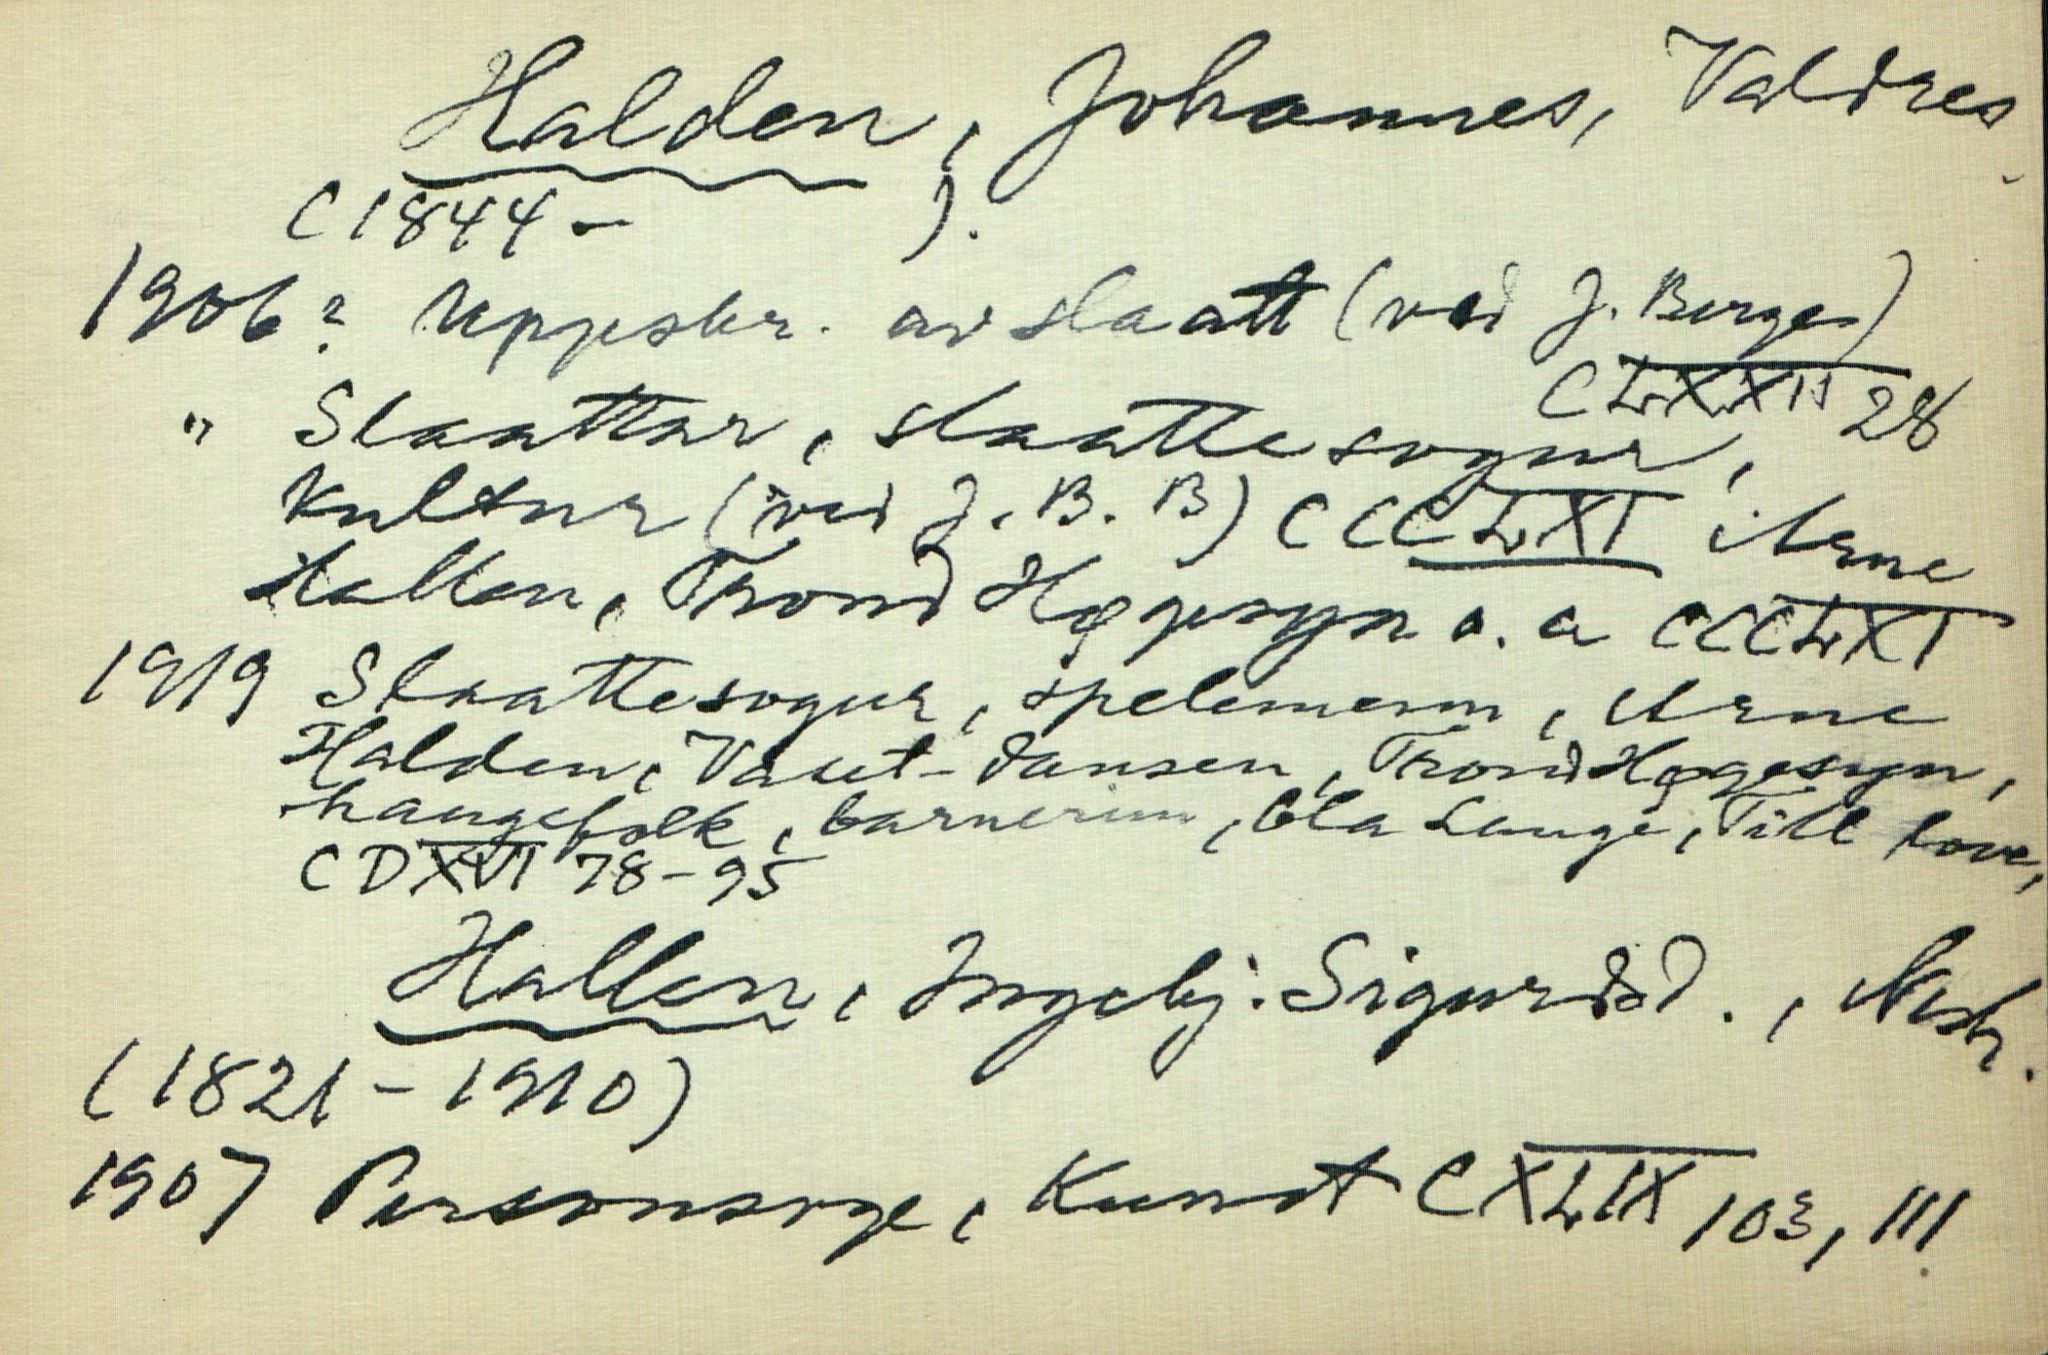 Halden, Johannes, Valdres.
(1844 – ).
1906? Uppskr. av slaatt (ved J. Berge)
CLXXII 28
" Slaattar, slaattesogur,
Kultur (ved J. B. B) CCCLXI Arne
Hallen, Trond Høgesyn o. a CCCLXI
1919 Slaattesogur, spelemenn, Arne
Halden, Vaset-dansen, Trond Høgesyn,
haugefolk, barnerim, Ola Lange, Till
CDXVI 78-95
Hallen, Ingebj. Sigurdsd.,
(1821-1910)
1907 Personsoge, Kunst CXLIX 103, 111